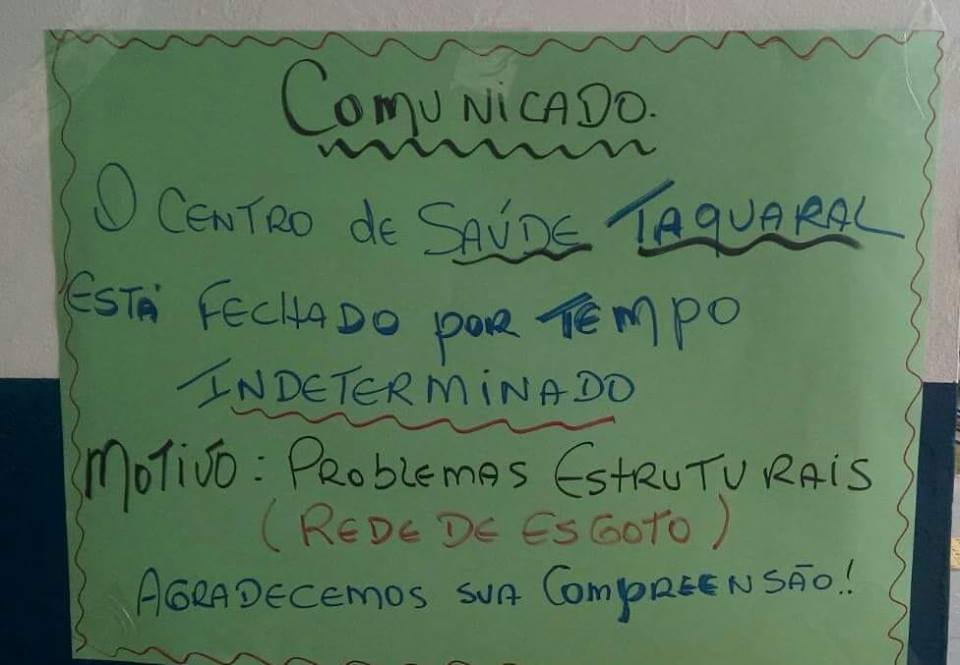 COMUNICADO.
O CENTRO de SAÚDE TAQUARAL
ESTÁ FECHADO POR TEMPO
INDETERMINADO
MOTIVO: PROBLEMAS ESTRUTURAIS
(REDE DE ESGOTO)
AGRADECEMOS SUA COMPREENSÃO!